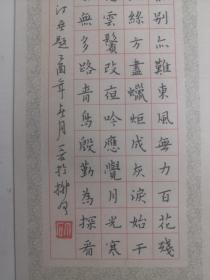 別亦難東風無力百花殘
絲方盡蠟炬成灰淚始干
雲鬢改夜吟應覺月光寒
無多路青鳥殷勤為探看
題酉年月